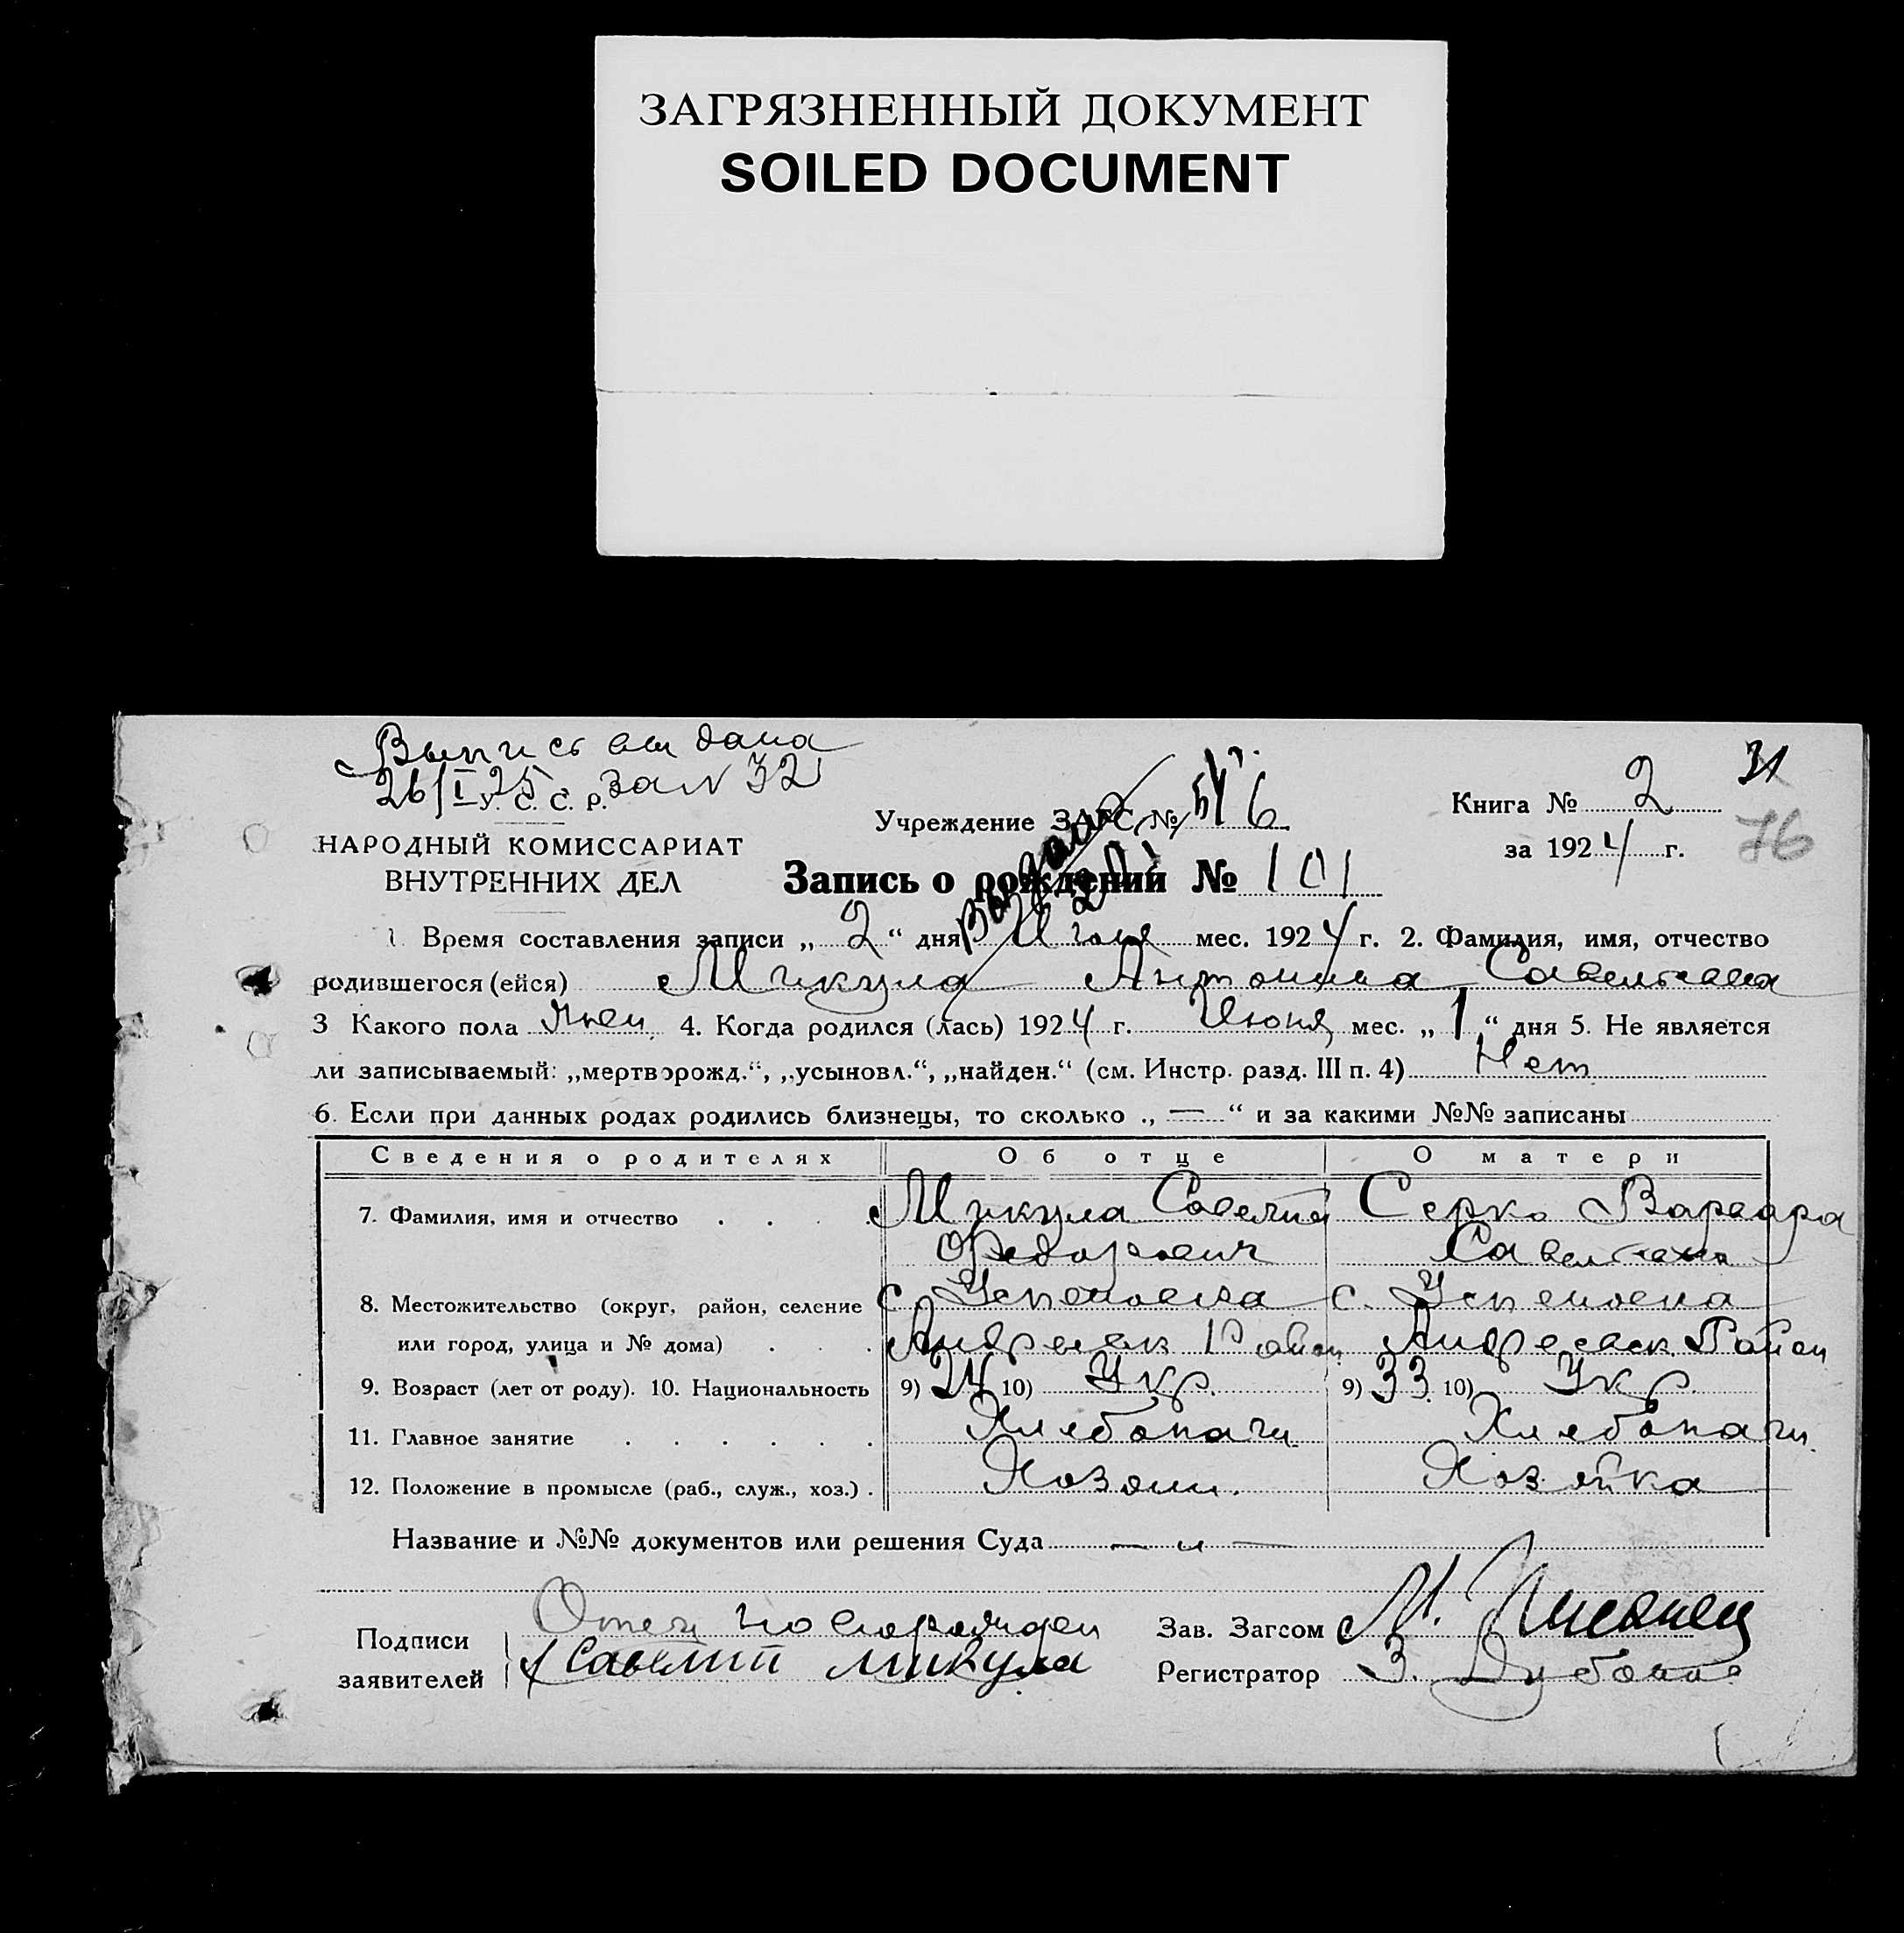 ЗАГРЯЗНЕННЫЙ ДОКУМЕНТ
SOILED DOCUMENT
Выпись дана
26/I 25 за N 32
У. С. С. Р.
НАРОДНЫЙ КОМИССАРИАТ
ВНУТРЕННИХ ДЕЛ
Учреждение ЗАГС № 6
Книга № 2 31
за 1924 г. 76
Запись о рождении № 101
1. Время составления записи „ 2 “ дня Июля мес. 1924 г. 2. Фамилия, имя, отчество
родившегося (ейся) Микула Антонина Савельевна
3 Какого пола жен. 4. Когда родился (лась) 1924 г. Июня мес. „ 1 “ дня 5. Не является
ли записываемый: „мертворожд.“, „усыновл.“, „найден.“ (см. Инстр. разд. III п. 4) Нет
6. Если при данных родах родились близнецы, то сколько „ — “ и за какими №№ записаны
Сведения о родителях Об отце О матери
7. Фамилия, имя и отчество Микула Савелий Серко Варвара
Федорович Савельевна
8. Местожительство (округ, район, селение с. Успеновка с. Успеновка
или город, улица и № дома) Андреевск Район Андреевск Район
9. Возраст (лет от роду). 10. Национальность 9) 24 10) Укр. 9) 33 10) Укр.
11. Главное занятие Хлебопаш. Хлебопаш.
12. Положение в промысле (раб., служ., хоз.) Хозяин. Хозяйка
Название и №№ документов или решения Суда — „ —
Подписи заявителей Отец новорожден
Савелий Микула
Зав. Загсом М.
Регистратор З.